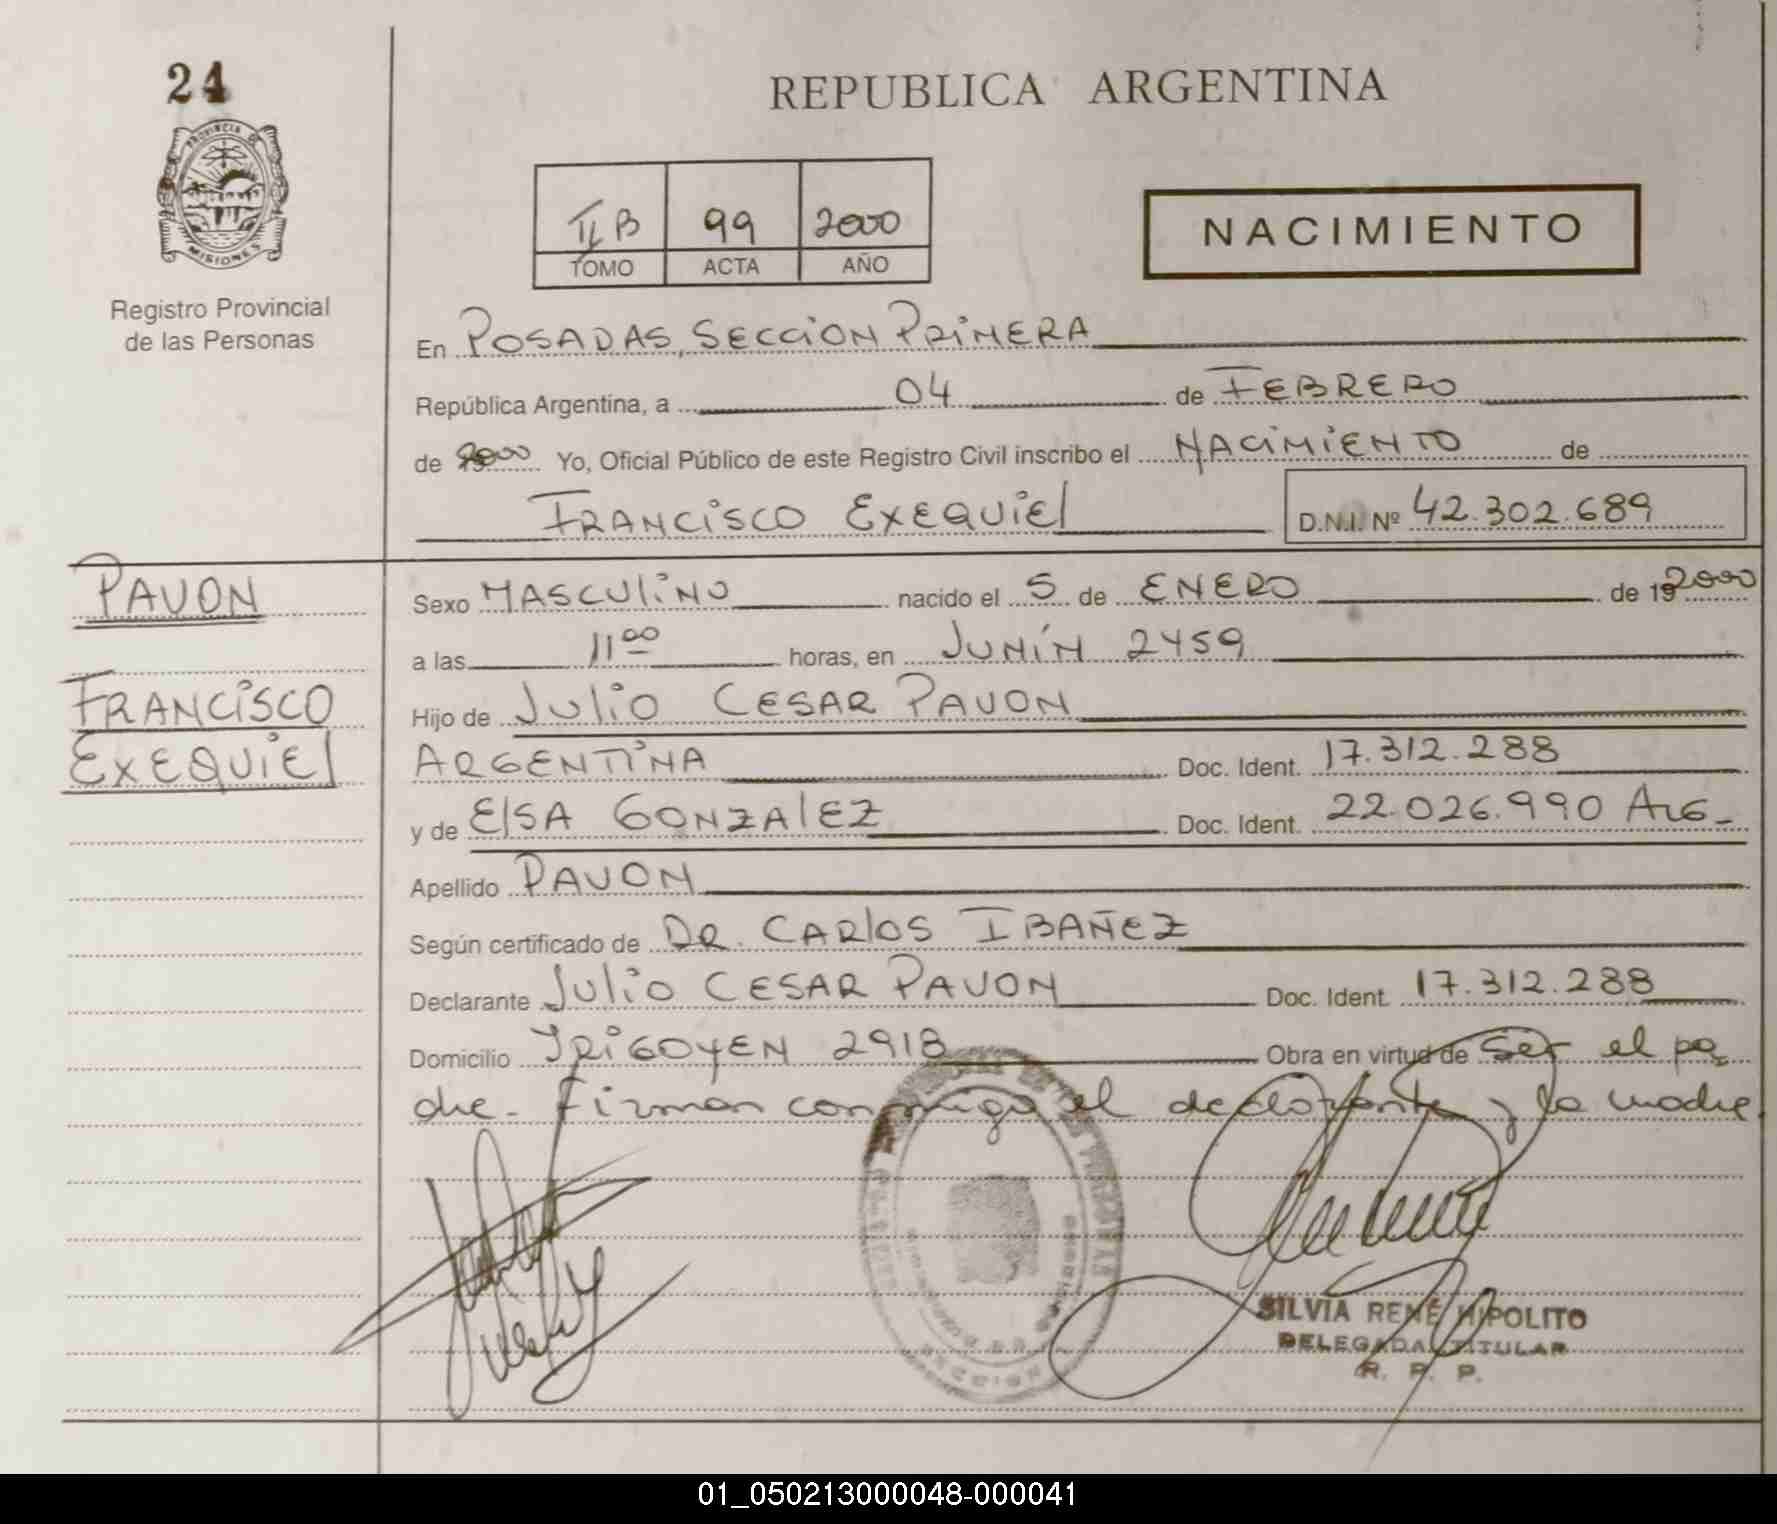 24
PROVINCIA DE
MISIONES
Registro Provincial
de las Personas
REPUBLICA ARGENTINA
II B 99 2000
TOMO ACTA AÑO
NACIMIENTO
En POSADAS, SECCION PRIMERA
República Argentina, a 04 de FEBRERO
de 2000 Yo, Oficial Público de este Registro Civil inscribo el NACIMIENTO de
FRANCISCO EXEQUIEL D.N.I. Nº 42.302.689
PAVON
FRANCISCO
EXEQUIEL
Sexo MASCULINO nacido el 5 de ENERO de 19 2000
a las 11 00 horas, en JUNÍN 2459
Hijo de JULIO CESAR PAVON
ARGENTINA Doc. Ident. 17.312.288
y de ELSA GONZALEZ Doc. Ident. 22.026.990 ARG
Apellido PAVON
Según certificado de DR. CARLOS IBAÑEZ
Declarante JULIO CESAR PAVON Doc. Ident. 17.312.288
Domicilio YRIGOYEN 2918 Obra en virtud de ser el pa
dre. Firman conmigo el declarante y la madre.
SILVIA RENÉ HIPOLITO
DELEGADA TITULAR
R. P. P.
01_050213000048-000041